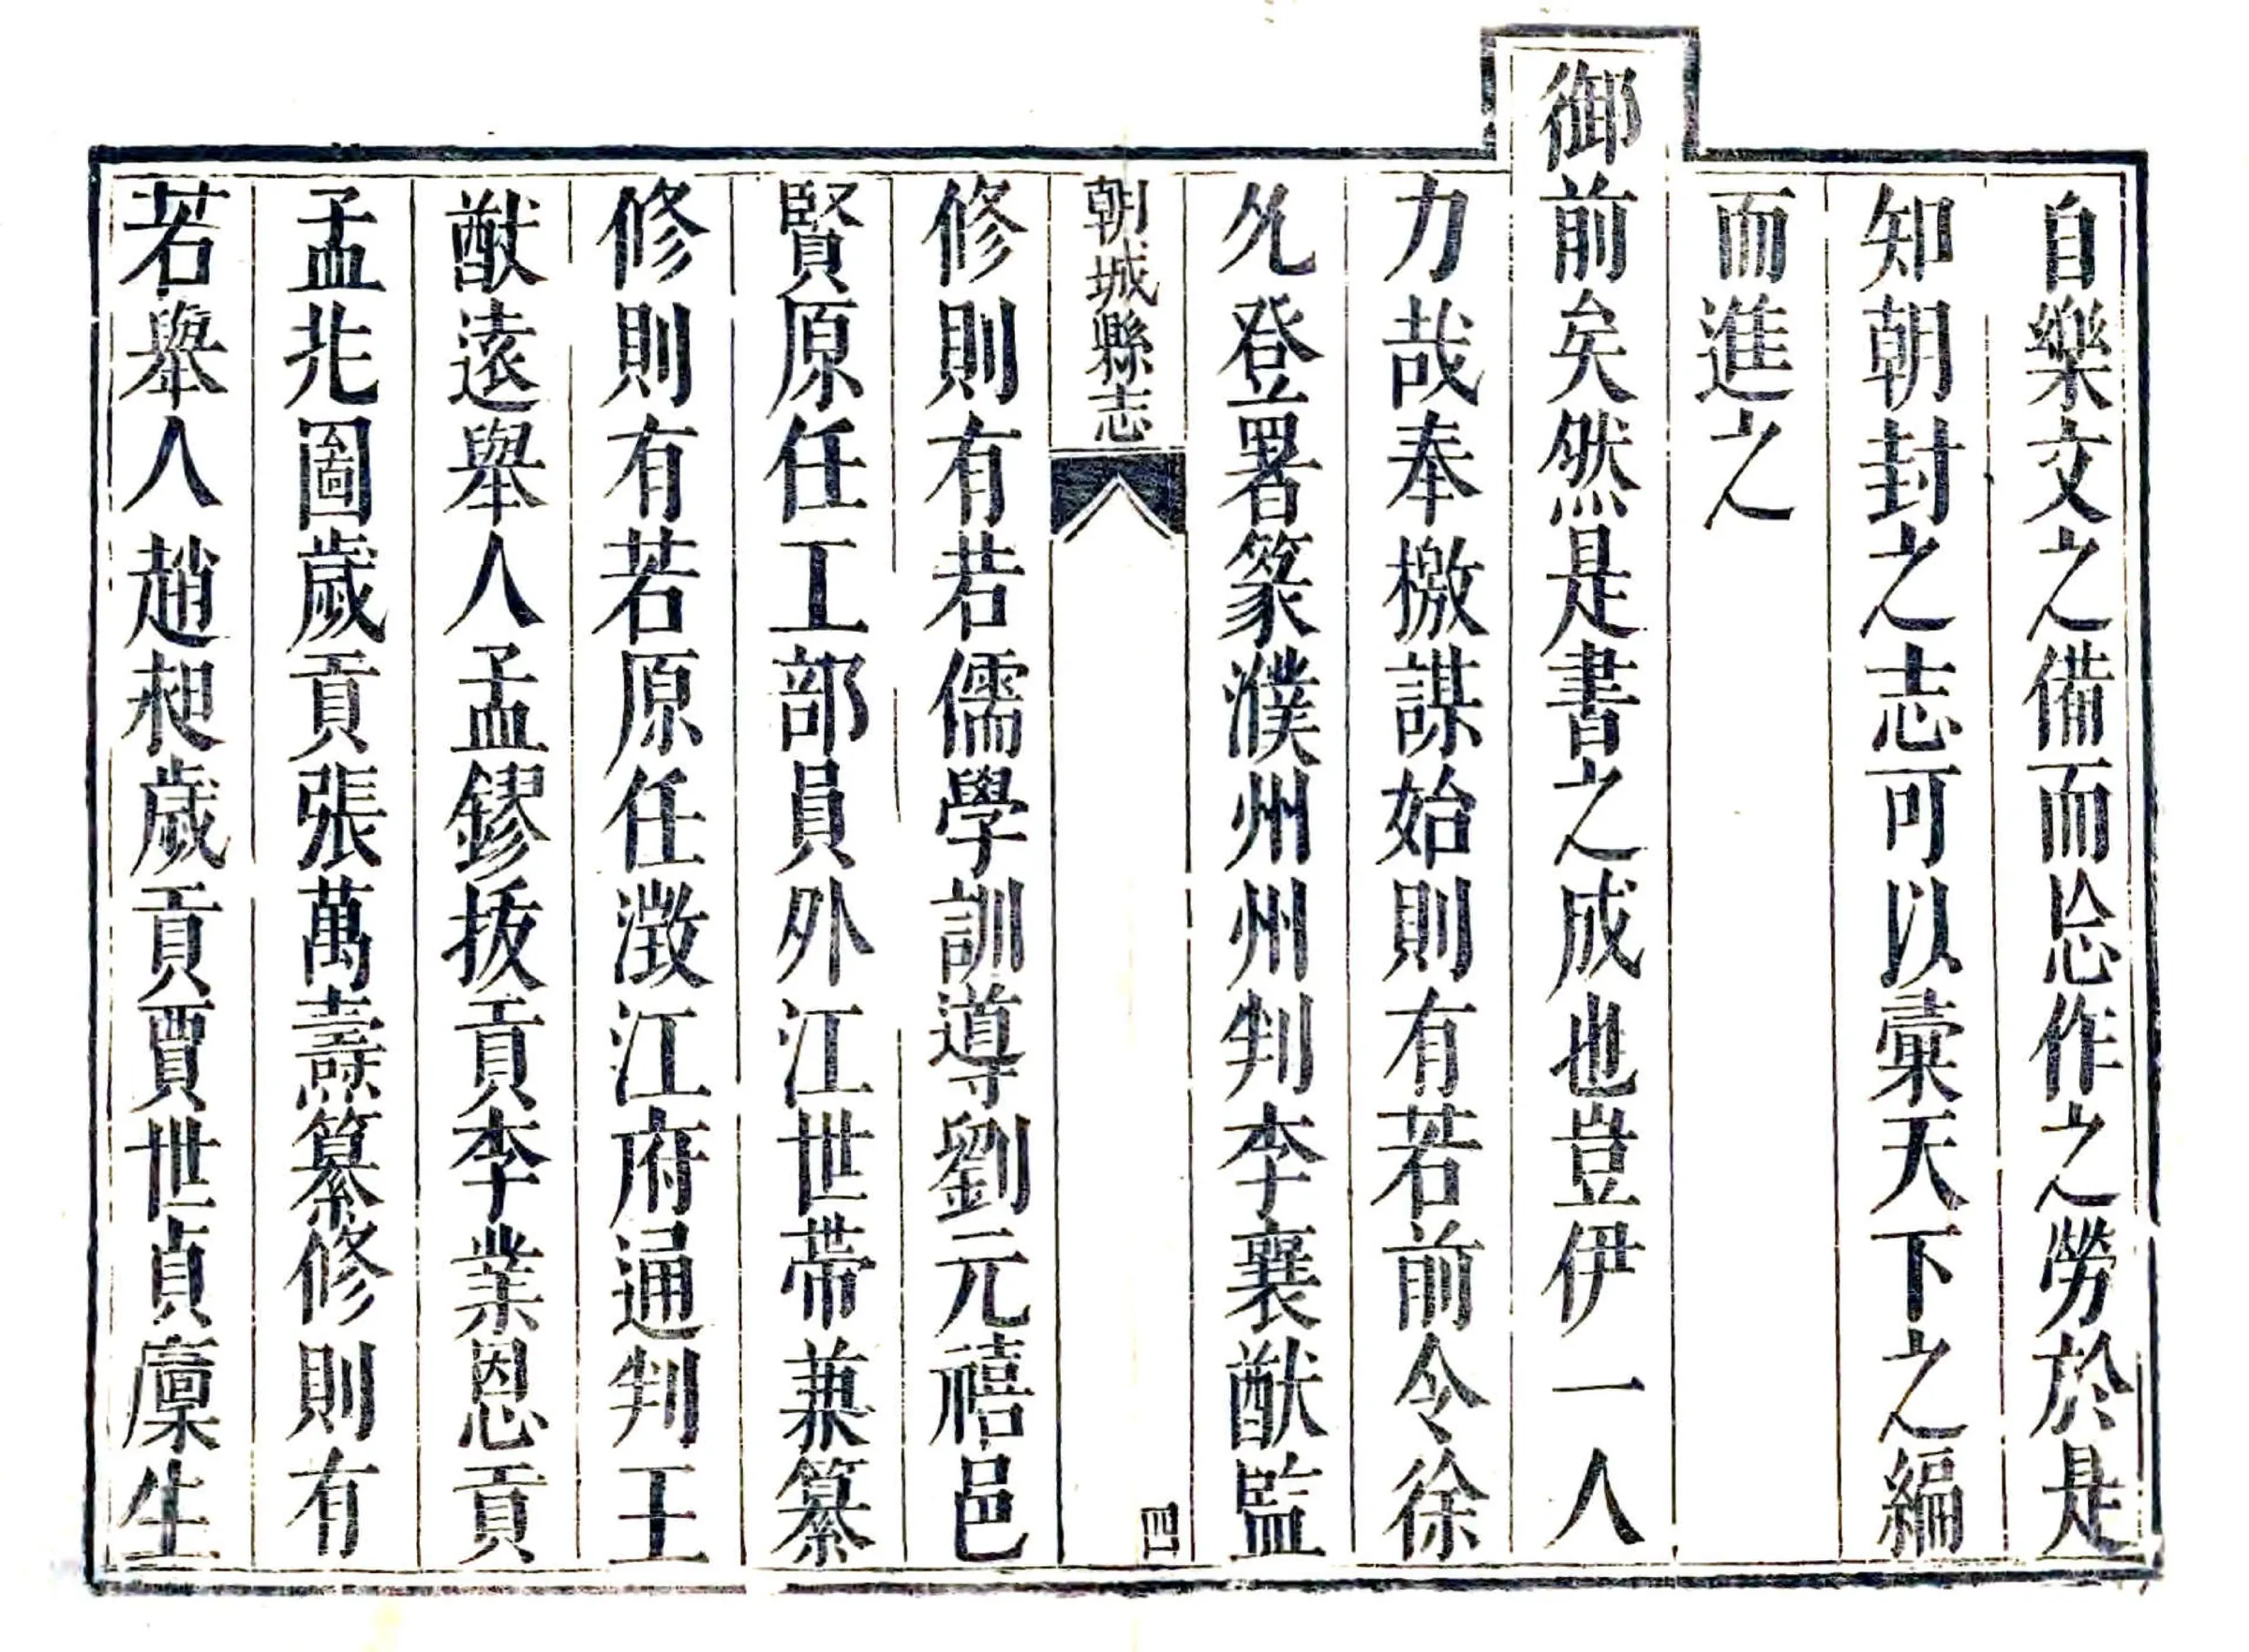 自樂文之備而忘作之勞於是
知朝封之志可以彙天下之編
而進之
御前矣然是書之成也豈伊一人
力哉奉檄謀始則有若前令徐
允登署篆濮州州判李襄猷監
朝城縣志
四
修則有若儒學訓導劉元禧邑
賢原任工部員外江世帶兼纂
修則有若原任澂江府通判王
猷遠舉人孟鏐拔貢李業恩貢
孟兆圖歲貢張萬壽纂修則有
若舉人趙昶歲貢賈世貞廩生